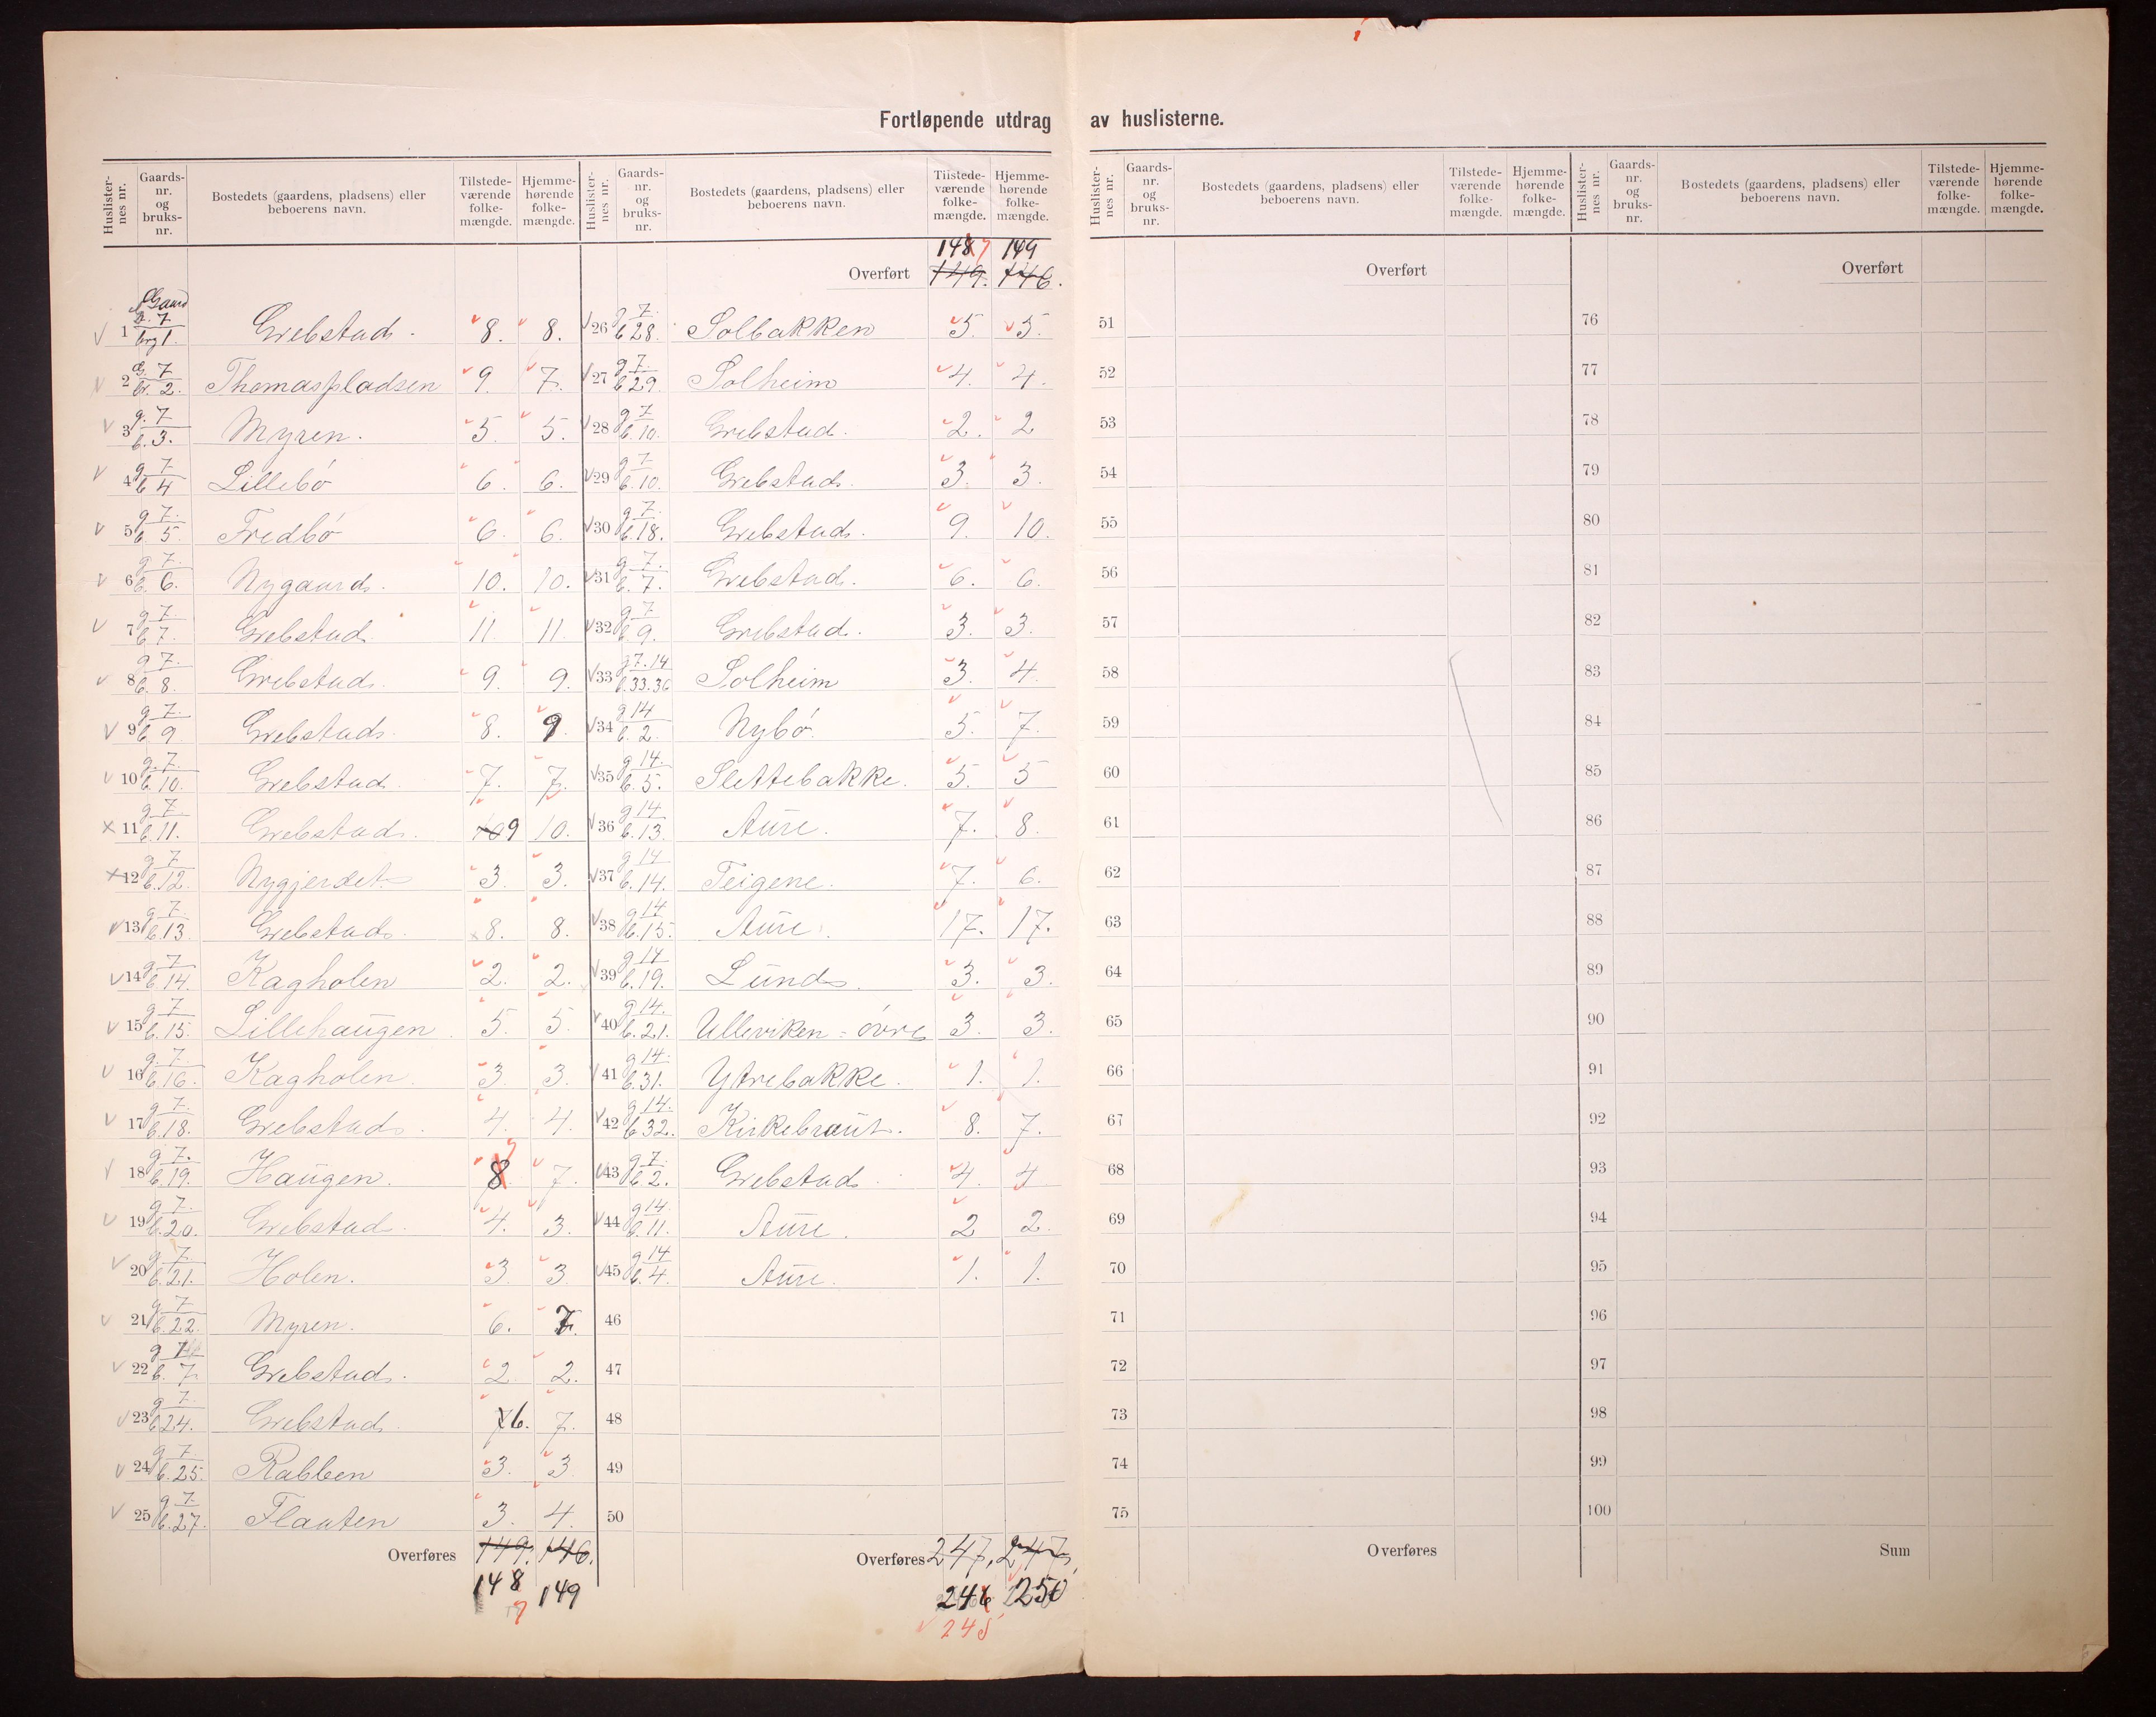 Fortløpende utdrag av huslisterne.
Huslister-nes nr. Gaards-nr. og bruks-nr. Bostedets (gaardens, pladsens) eller beboerens navn. Tilstede-værende folke-mængde. Hjemme-hørende folke-mængde.
1 G. 7 brg 1. Grebstad. 8. 8.
2 G. 7 br. 2. Thomaspladsen 9. 7.
3 g. 7 b. 3. Myren. 5. 5.
4 g 7 b 4 Lillebö 6. 6.
5 g 7. b. 5. Fredbö 6. 6.
6 g 7. b. 6. Nygaard. 10. 10.
7 g 7 b 7. Grebstad. 11. 11.
8 g 7. b. 8. Grebstad. 9. 9.
9 g 7. b. 9 Grebstad. 8. 9.
10 g. 7. b. 10. Grebstad. 7. 7.
11 g 7 b. 11. Grebstad. 10 9 10.
12 g 7 b. 12. Nygjerdet 3. 3.
13 g 7. b. 13. Grebstad. 8. 8.
14 g 7 b. 14. Kagholen 2. 2.
15 g 7 b. 15. Lillehaugen. 5. 5.
16 g. 7. b. 16. Kagholen. 3. 3.
17 g 7. b. 18. Grebstad. 4. 4.
18 g 7. b. 19. Haugen. 8 7 7.
19 g 7. b. 20. Grebstad. 4. 3.
20 g 7. b. 21. Holen. 3. 3
21 g 7 b. 22. Myren. 6. 7.
22 g b. 7 Grebstad. 2 2.
23 g 7. b 24. Grebstad. 7 6. 7.
24 g 7. b. 25. Rabben 3. 3
25 g 7. b. 27. Flauten 3. 4.
Overføres 149. 146.
148 149
7
Huslister-nes nr. Gaards-nr. og bruks-nr. Bostedets (gaardens, pladsens) eller beboerens navn. Tilstede-værende folke-mængde. Hjemme-hørende folke-mængde.
148 7 149
Overført 149. 146.
26 g 7. b 28. Solbakken 5. 5.
27 g 7. b 29. Solheim 4. 4.
28 g 7 b. 10. Grebstad. 2. 2
29 g 7 b. 10. Grebstad. 3. 3.
30 g 7. b. 18. Grebstad. 9. 10.
31 g 7. b. 7. Grebstad. 6. 6.
32 g 7 b. 9. Grebstad. 3. 3.
33 g 7. 14 b. 33. 36 Solheim 3. 4.
34 g 14 b. 2. Nybö. 5. 7.
35 g 14. b. 5. Slettebakke. 5. 5
36 g 14 b. 13. Aure. 7. 8.
37 g 14 b. 14. Teigene. 7. 6.
38 g 14 b. 15. Aure. 17. 17.
39 g 14 b. 19. Lund. 3. 3.
40 g 14. b. 21. Ulleviken - övre 3. 3.
41 g 14. b. 31. Ytrebakke. 1. 1.
42 g 14. b 32. Kirkebraut. 8. 7.
43 g 7. b 2. Grebstad. 4. 4
44 g 14 b. 11. Aure. 2 2.
45 g 14 b. 4. Aure. 1. 1.
46
47
48
49
50
Overføres 247. 247.
246 250
245
Huslister-nes nr. Gaards-nr. og bruks-nr. Bostedets (gaardens, pladsens) eller beboerens navn. Tilstede-værende folke-mængde. Hjemme-hørende folke-mængde.
Overført
51
52
53
54
55
56
57
58
59
60
61
62
63
64
65
66
67
68
69
70
71
72
73
74
75
Overføres
Huslister-nes nr. Gaards-nr. og bruks-nr. Bostedets (gaardens, pladsens) eller beboerens navn. Tilstede-værende folke-mængde. Hjemme-hørende folke-mængde.
Overført
76
77
78
79
80
81
82
83
84
85
86
87
88
89
90
91
92
93
94
95
96
97
98
99
100
Sum